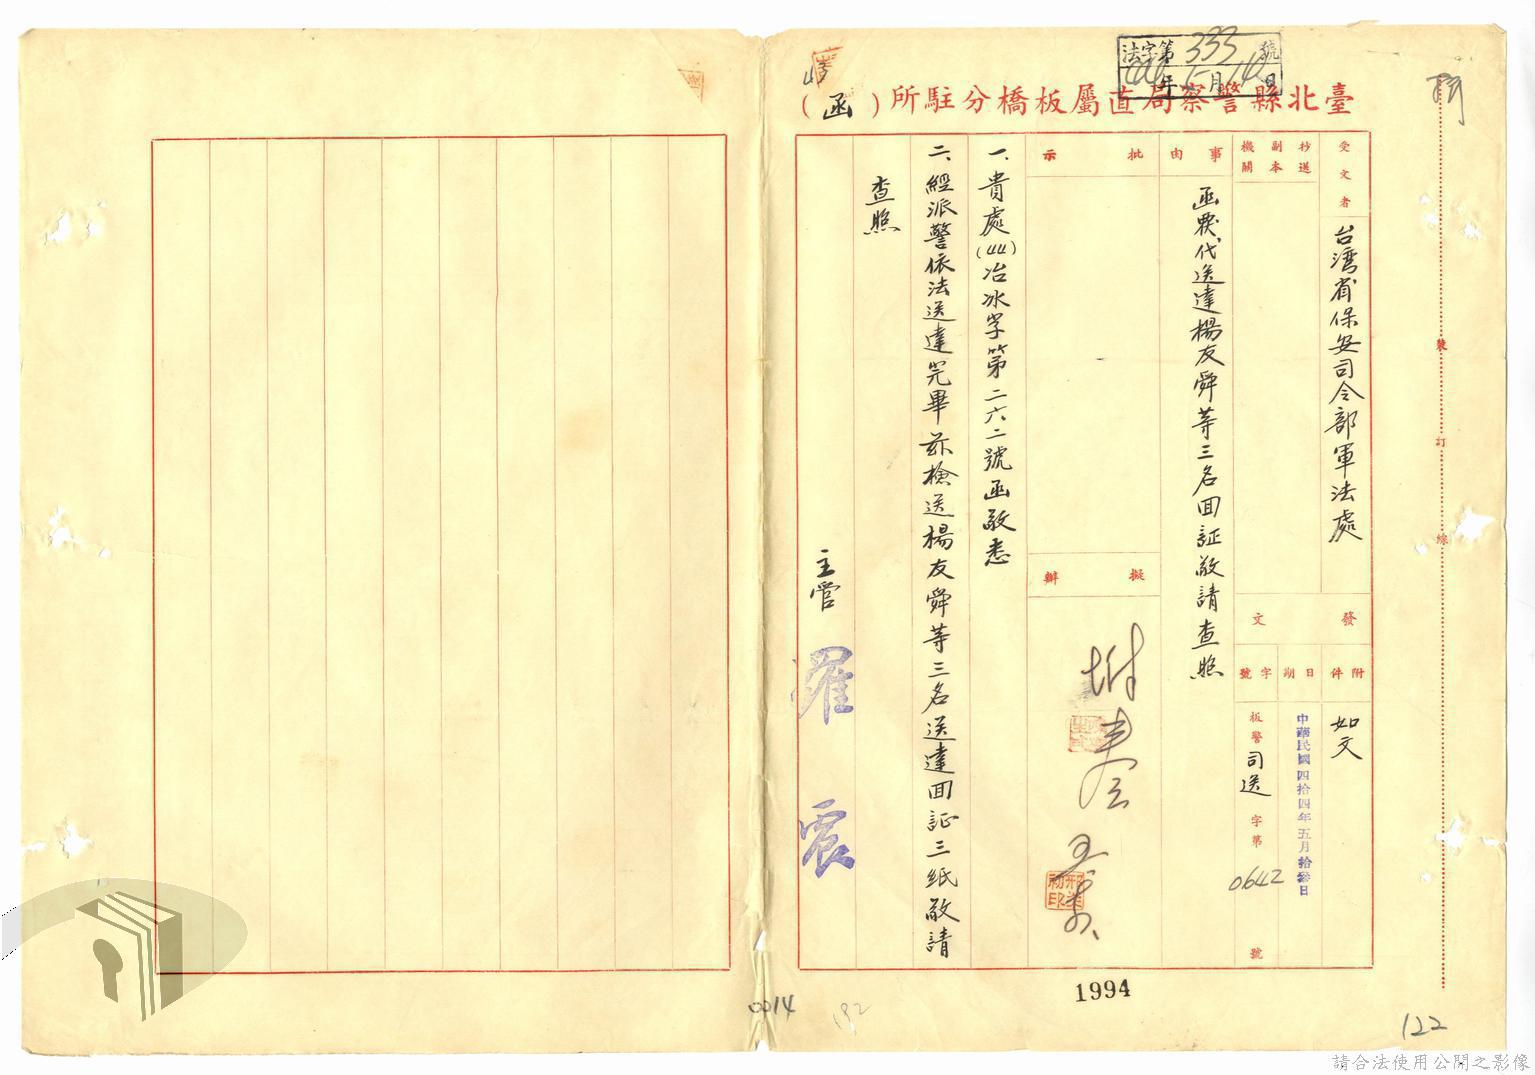 法字第333號
44年5月14日
臺北縣警察局直屬板橋分駐所（函）
受文者
台湾省保安司令部軍法處
抄送
副本
機關
發文
附件
如文
日期
中華民國四拾四年五月拾參日
字號
板警司送字第0642號
事由
函覆代送達楊友舜等三名囬証敬請查照
批示
擬辦
一、貴處(44)冶冰字第二六二號函敬悉
二、經派警依法送達完畢茲檢送楊友舜等三名送達囬証三紙敬請
查照
主管 羅震
裝
訂
線
1994
0014
192
122
請合法使用公開之影像